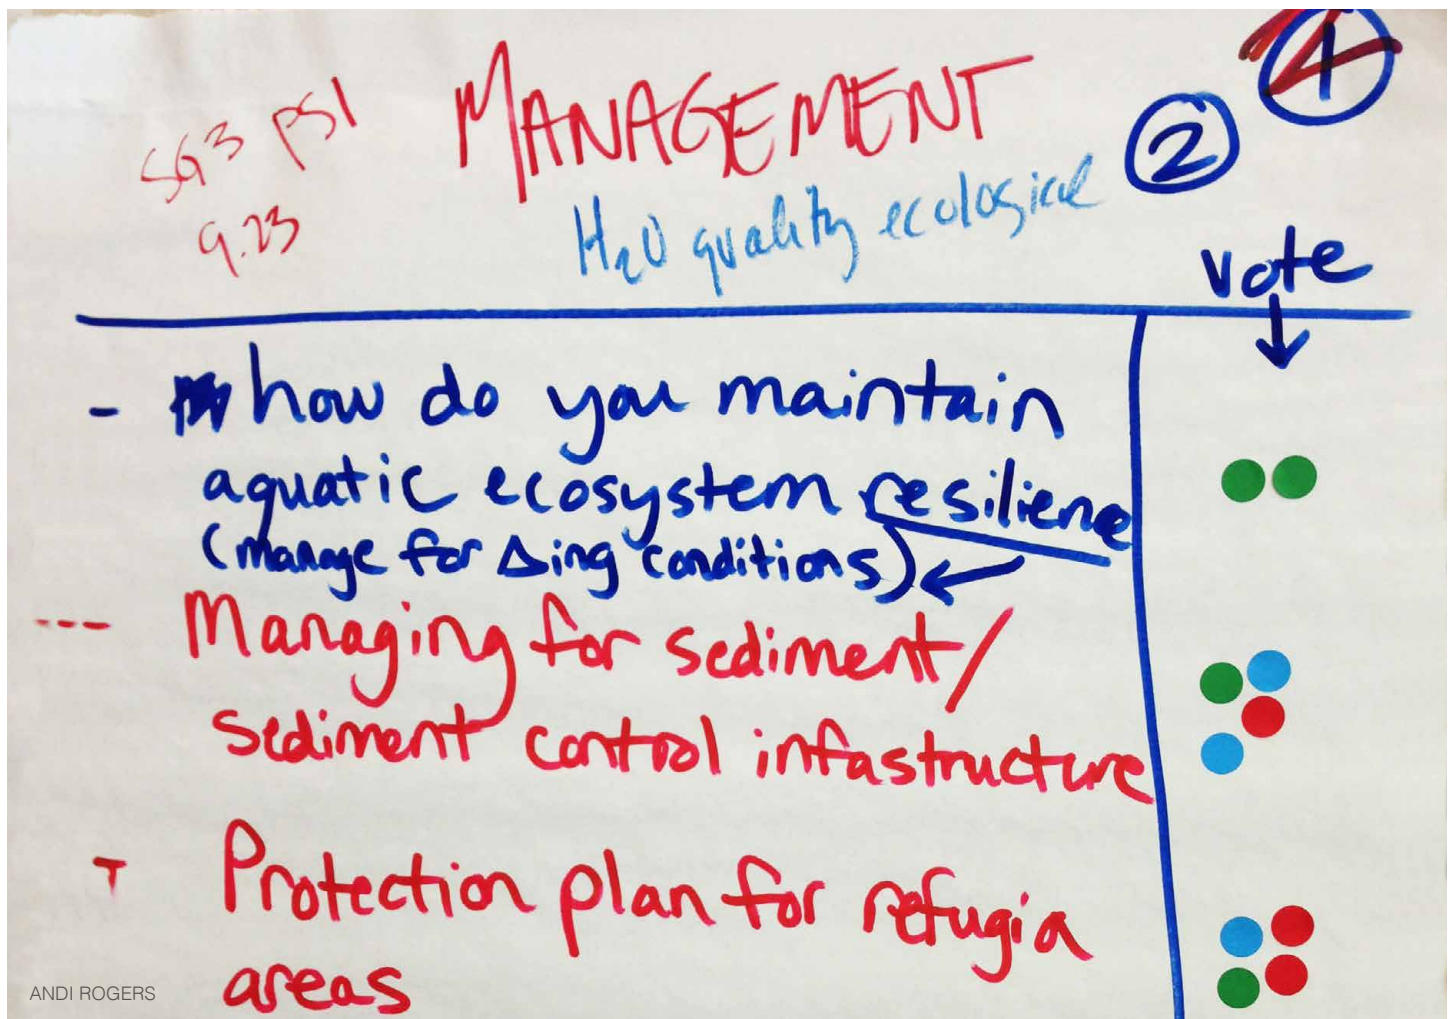 SG3 PS1
9.23
MANAGEMENT
H₂O quality ecological
2
1
vote
- how do you maintain
aquatic ecosystem resiliene
(manage for Δing conditions)
--- Managing for sediment/
sediment control infastructure
Protection plan for refugia
areas
ANDI ROGERS